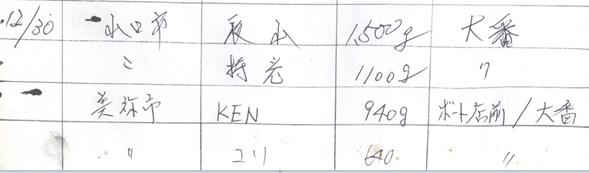 12/30 山口市 秋山 1,500g 大番
〃 持光 1100g 〃
美祢市 KEN 940g ボート店前/大番
〃 ユリ 640. 〃